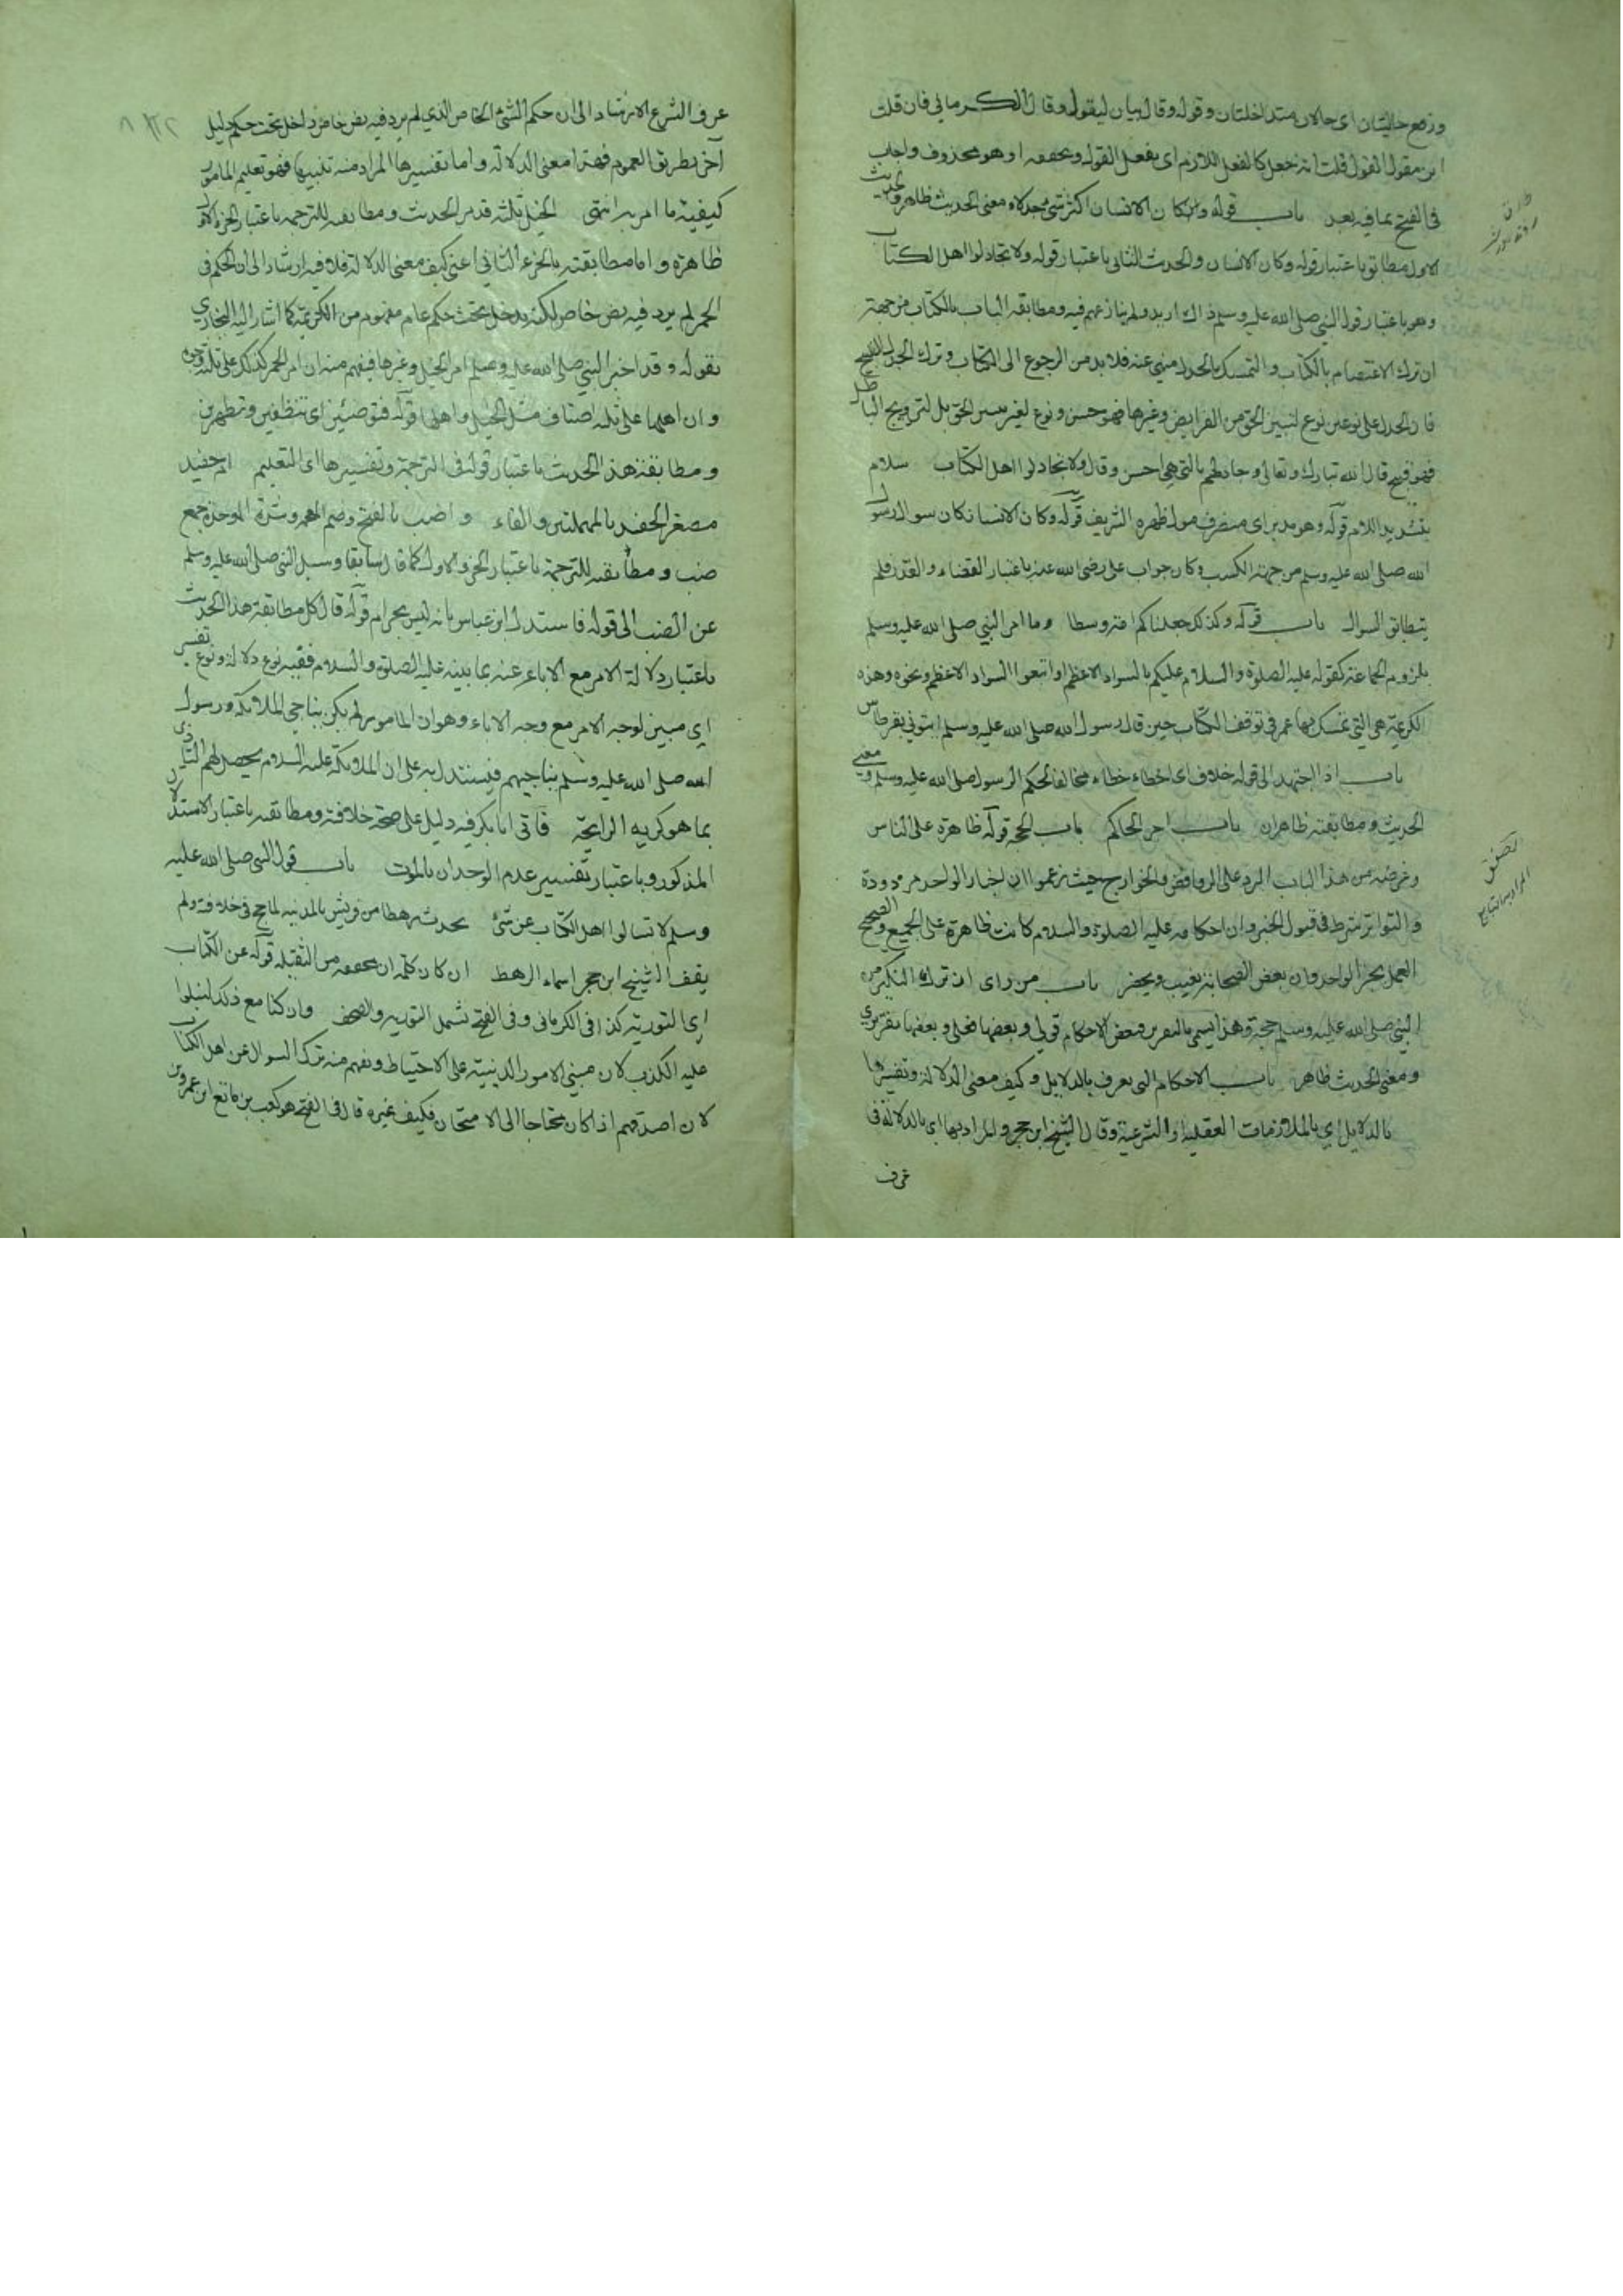 وزمع حاليتان اى حالان متداخلتان وقوله وقال بيان ليقول وقال الكرمانى فان قلت
اين مقول القول قلت انه جعل كالفعل اللازم اى يفعل القول ويحققه او هو محذوف واجاب
فى الفتح بما فيه بعد باب قوله وكان الانسان اكثر شئ جدلا ومعنى الحديث ظاهر والحديث
الاول مطابق باعتبار قوله وكان الانسان والحديث الثانى باعتبار قوله ولا تجادلوا اهل الكتاب
وهو باعتبار قول النبى صلى الله عليه وسلم ذلك اريد ولم ينازعهم فيه ومطابقة الباب بالكتاب من جهة
ان ترك الاعتصام بالكتاب والتمسك بالجدل منهى عنه فلا بد من الرجوع الى الكتاب وترك الجدل القبيح
فان الجدل على نوعين نوع لتبيين الحق من الفرايض وغيرها فهو حسن ونوع لغير تبيين الحق بل لترويج الباطل
فهو قبيح قال الله تبارك وتعالى وجادلهم بالتى هى احسن وقال ولا تجادلوا اهل الكتاب سلام
بتشديد اللام قوله وهو مدبر اى منصرف مول ظهره الشريف قوله وكان الانسان كان سوال رسول
الله صلى الله عليه وسلم من جهة الكسب وكان جواب على رضى الله عنه باعتبار القضاء والقدر فلم
يتطابق السوال باب قوله وكذلك جعلناكم امة وسطا وما امر النبى صلى الله عليه وسلم
بلزوم الجماعة كقوله عليه الصلوة والسلام عليكم بالسواد الاعظم او اتبعوا السواد الاعظم ونحوه وهذه
الكريمة هى التى تمسك بها عمر فى توقف الكتاب حين قال رسول الله صلى الله عليه وسلم ايتونى بقرطاس
باب اذا اجتهد الى قوله خلاف اى اخطاء خطاء مخالفا لحكم الرسول صلى الله عليه وسلم ومعنى
الحديث ومطابقته ظاهران باب اجر الحاكم باب الحجة قوله ظاهرة على الناس
وغرضه من هذا الباب الرد على الروافض والخوارج حيث زعموا ان اخبار الواحد مردودة
والتواتر شرط فى قبول الخبر وان احكامه عليه الصلوة والسلام كانت ظاهرة على الجميع والصحيح
العمل بخبر الواحد وان بعض الصحابة يغيب ويحضر باب من راى ان ترك النكير من
النبى صلى الله عليه وسلم حجة وهذا يسمى بالتقرير فبعض الاحكام قولى وبعضها فعلى وبعضها تقريرى
ومعنى الحديث ظاهر باب الاحكام التى يعرف بالدلايل وكيف معنى الدلالة وتفسيرها
بالدلايل اى بالملازمات العقلية او الشرعية وقال الشيخ ابن حجر والمراد بها اى بالدلالة فى
عرف
المراد به التتابع
عرف الشرع الارشاد الى ان حكم الشئ الخاص الذى لم يرد فيه نص خاص داخل تحت حكم دليل
آخر بطريق العموم فهذا معنى الدلالة واما تفسيرها المراد منه تنبيها فهو تعليم المامور
كيفية ما امر به انتهى الخيل ثلثة قد مر الحديث ومطابقته للترجمة باعتبار الجزء الاول
ظاهرة واما مطابقته بالجزء الثانى اعنى كيف معنى الدلالة فلا فيه ارشاد الى ان الحكم فى
الحمر لم يرد فيه نص خاص لكنه يدخل تحت حكم عام مفهوم من الكريمة كما اشار اليه البخارى
بقوله وقد اخبر النبى صلى الله عليه وسلم امر الخيل وغيرها فيفهم منه ان امر الحمر كذلك على ثلثة وجوه
وان اهلها على ثلثة اصناف مثل الخيل واهلها قوله فتوضئين اى تتنظفين وتتطهرين
ومطابقة هذا الحديث باعتبار قوله فى الترجمة وتفسيرها اى التعليم ام حفيد
مصغر الحفد بالمهملتين والفاء واضب بالفتح وضم المعجمة وشدة الموحدة جمع
ضب ومطابقته للترجمة باعتبار الجزء الاول كما قال سابقا وسئل النبى صلى الله عليه وسلم
عن الضب الى قوله فاستدل ابن عباس بانه ليس بحرام قوله قال كل مطابقة هذا الحديث
باعتبار دلالة الامر مع الاباء عنه بما بينه عليه الصلوة والسلام ففيه نوع دلالة ونوع تفسير
اى مبين لوجه الامر مع وجه الاباء وهو ان المامور لم يكن يناجى الملائكة ورسول
الله صلى الله عليه وسلم يناجيهم فيستدل به على ان الملائكة عليهم السلام يحصل لهم التاذى
بما هو كريه الرايحة فاتى ابا بكر فيه دليل على صحة خلافته ومطابقته باعتبار الاستدلال
المذكور وباعتبار تفسير عدم الوجدان بالموت باب قول النبى صلى الله عليه
وسلم لا تسالوا اهل الكتاب عن شئ يحدث رهطا من قريش بالمدينة لما حج فى خلافته ولم
يقف الشيخ ابن حجر اسماء الرهط ان كان كلمة ان مخففة من الثقيلة قوله عن الكتاب
اى التورية كذا فى الكرمانى وفى الفتح تشمل التورية والصحف وان كنا مع ذلك لنبلوا
عليه الكذب لان مبنى الامور الدينية على الاحتياط ويفهم منه ترك السوال عن اهل الكتاب
لان اصدقهم اذا كان محتاجا الى الامتحان فكيف غيره قال فى الفتح هو كعب بن ماتع ابن عمرو بن